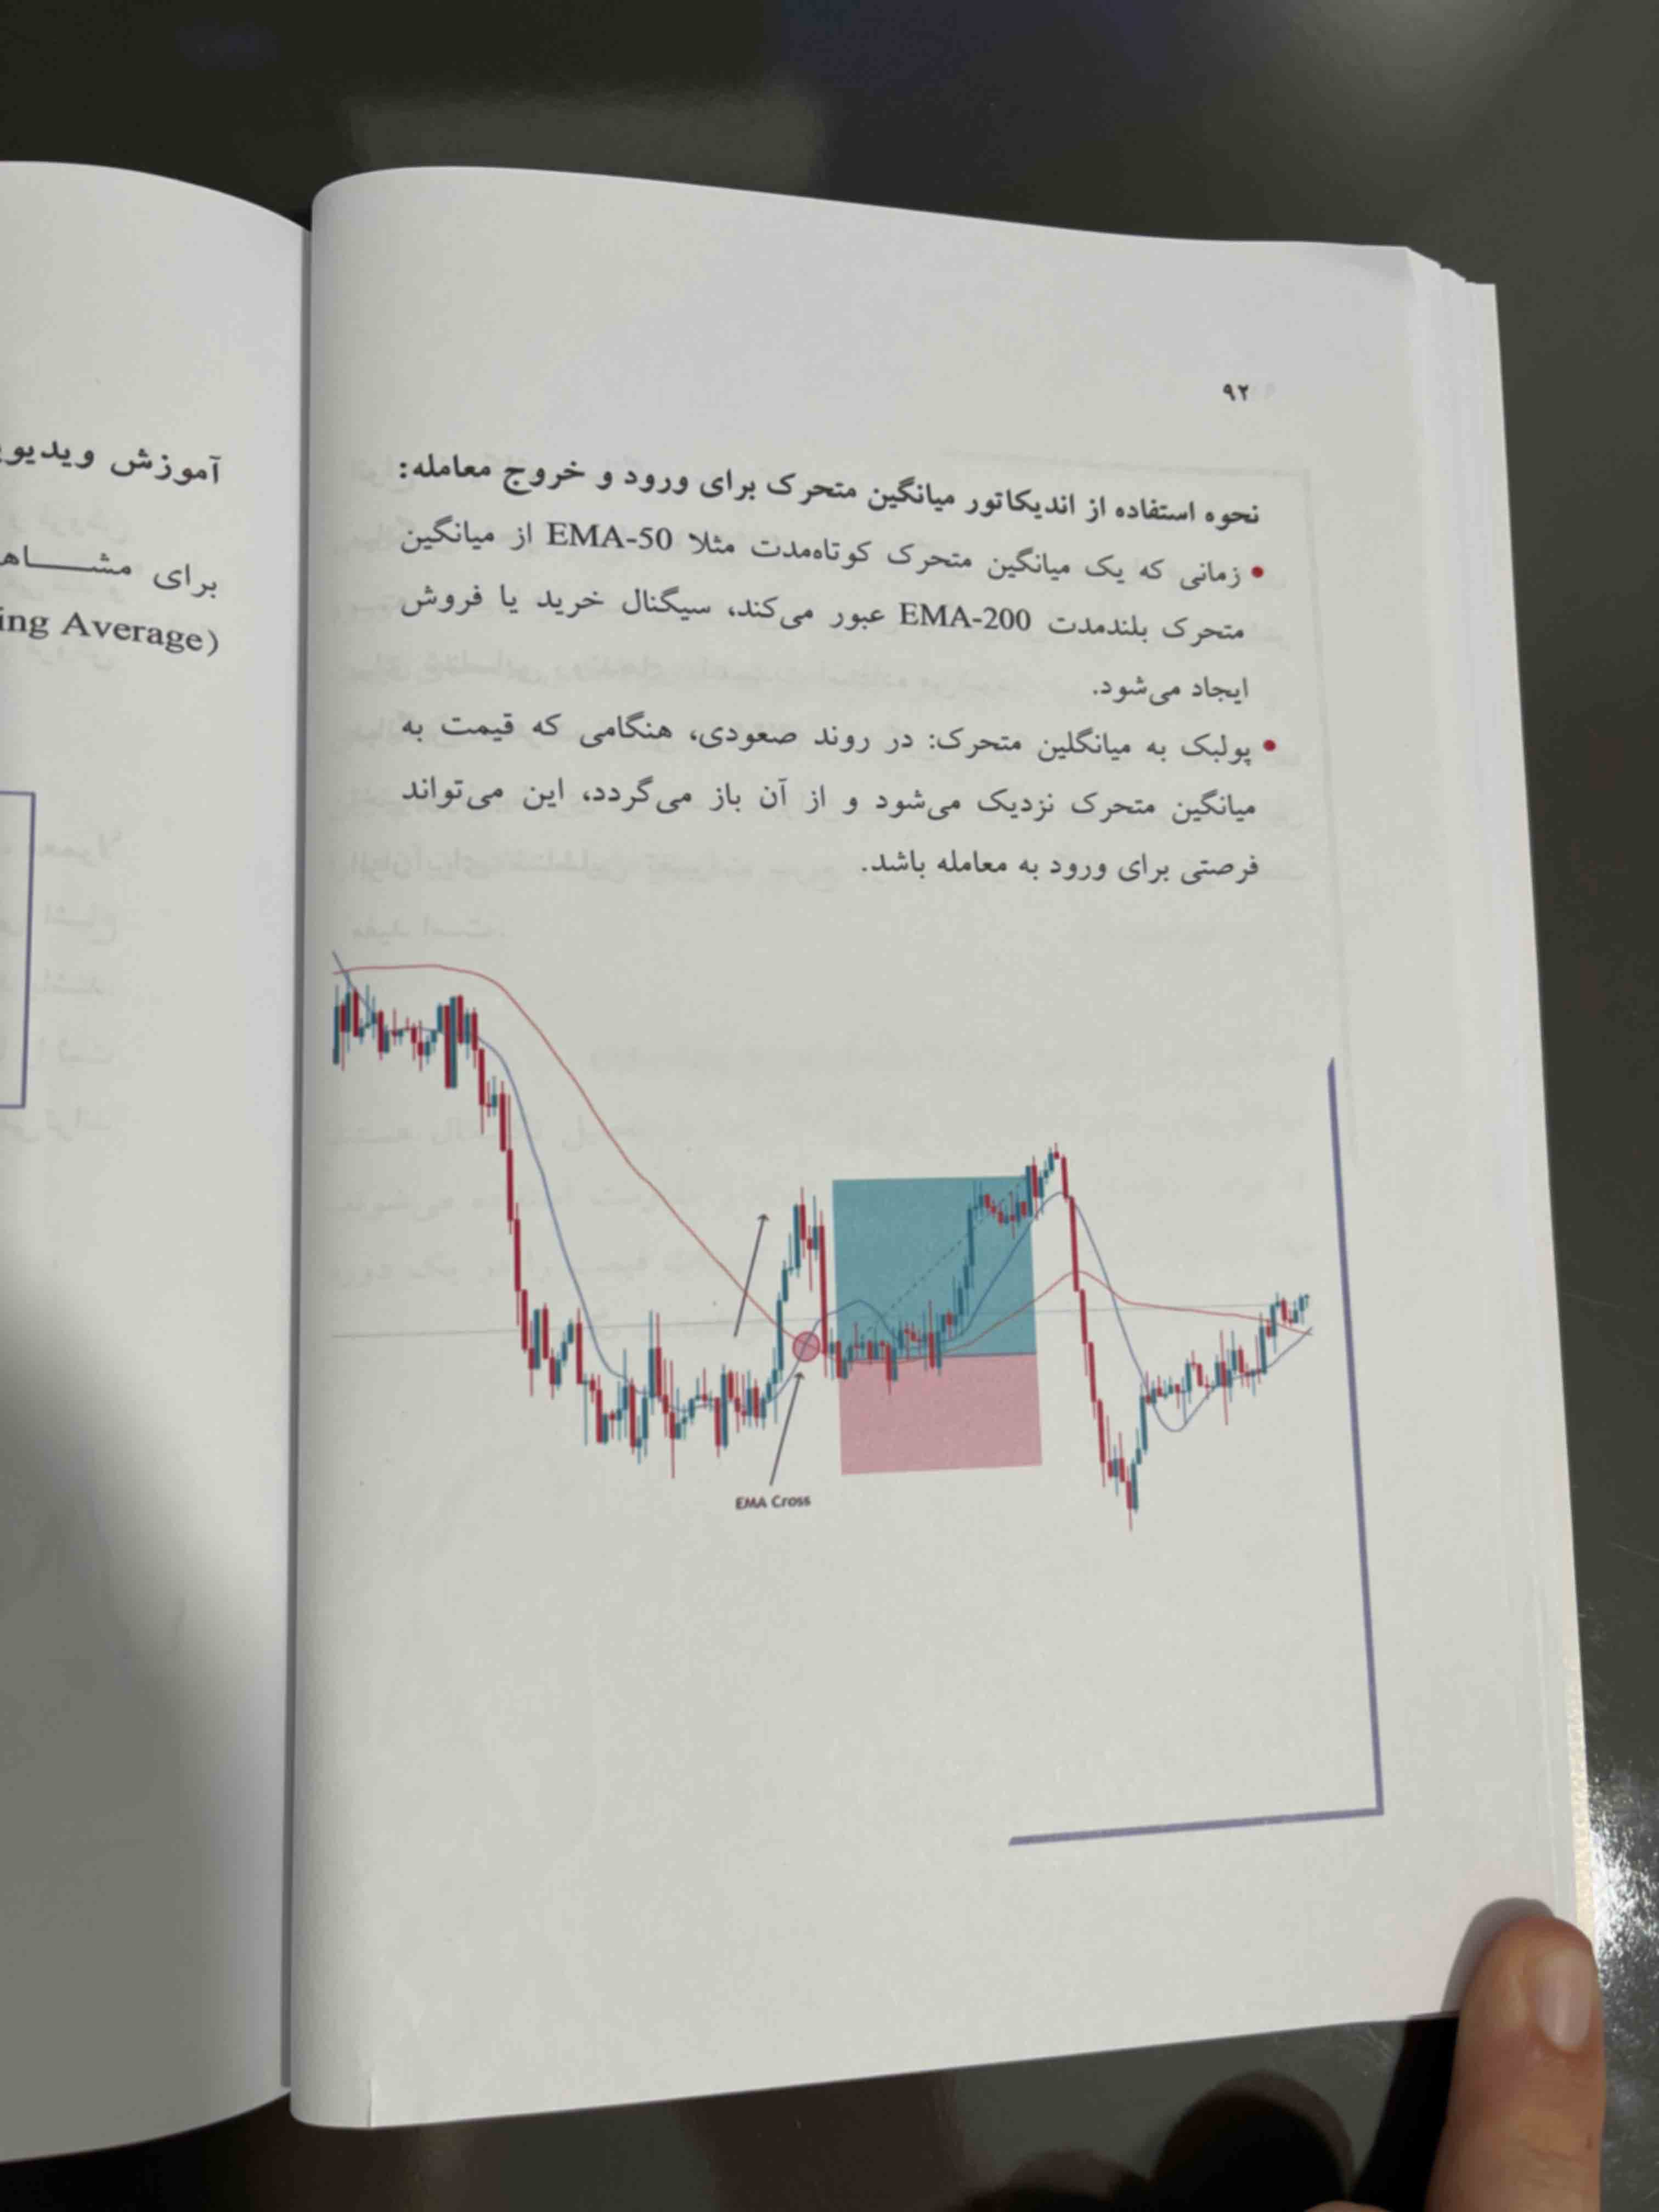 ۹۲
نحوه استفاده از اندیکاتور میانگین متحرک برای ورود و خروج معامله:
• زمانی که یک میانگین متحرک کوتاه‌مدت مثلا EMA-50 از میانگین
متحرک بلندمدت EMA-200 عبور می‌کند، سیگنال خرید یا فروش
ایجاد می‌شود.
• پولبک به میانگلین متحرک: در روند صعودی، هنگامی که قیمت به
میانگین متحرک نزدیک می‌شود و از آن باز می‌گردد، این می‌تواند
فرصتی برای ورود به معامله باشد.
EMA Cross
آموزش
برای
Average)